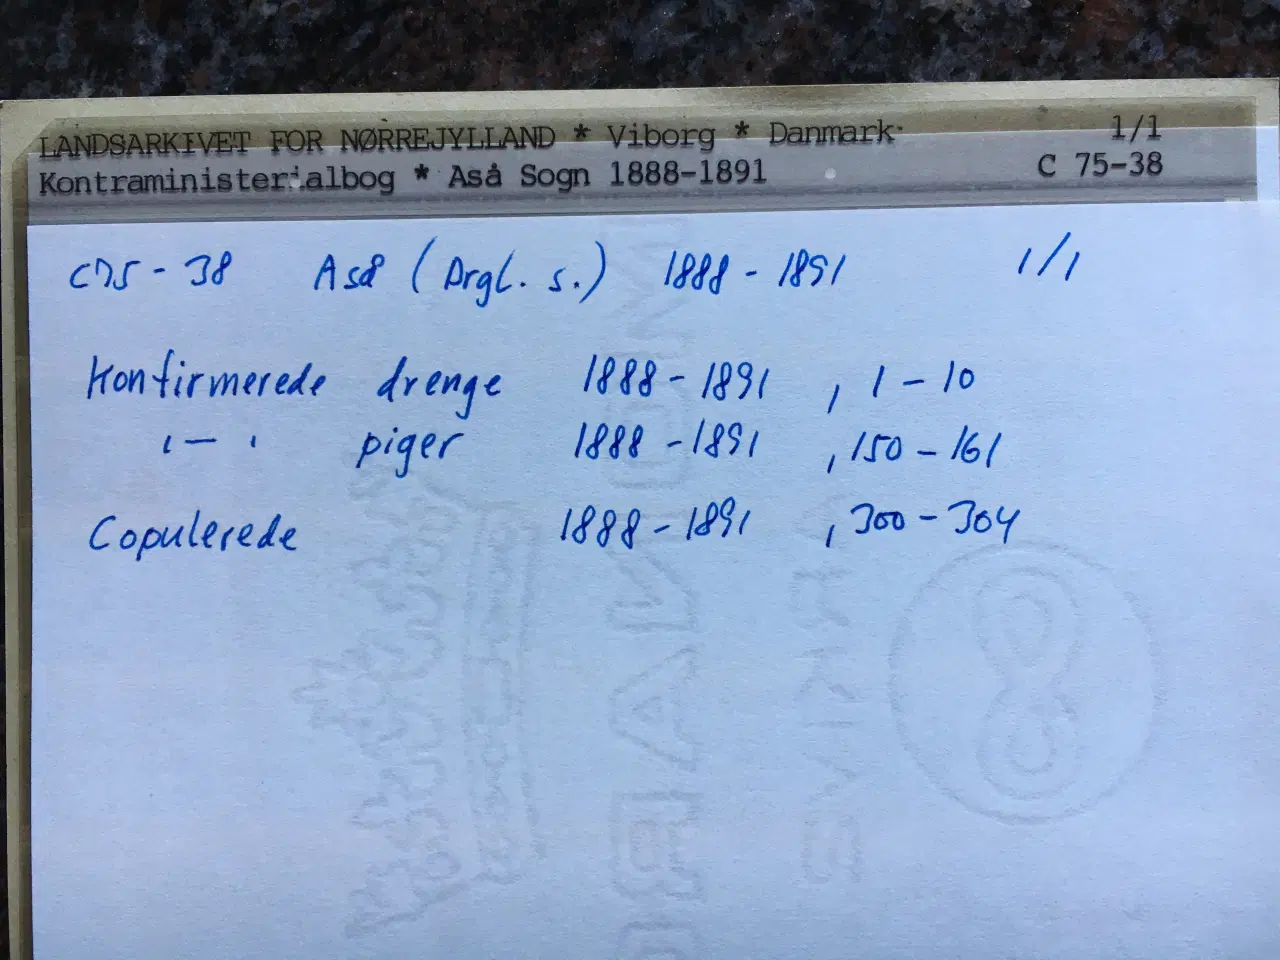 LANDSARKIVET FOR NØRREJYLLAND * Viborg * Danmark 1/1
Kontraministerialbog * Aså Sogn 1888-1891 C 75-38
C75-38 Aså (Drgl. s.) 1888-1891 1/1
Konfirmerede drenge 1888-1891, 1-10
-"- piger 1888-1891, 150-161
Copulerede 1888-1891, 300-304